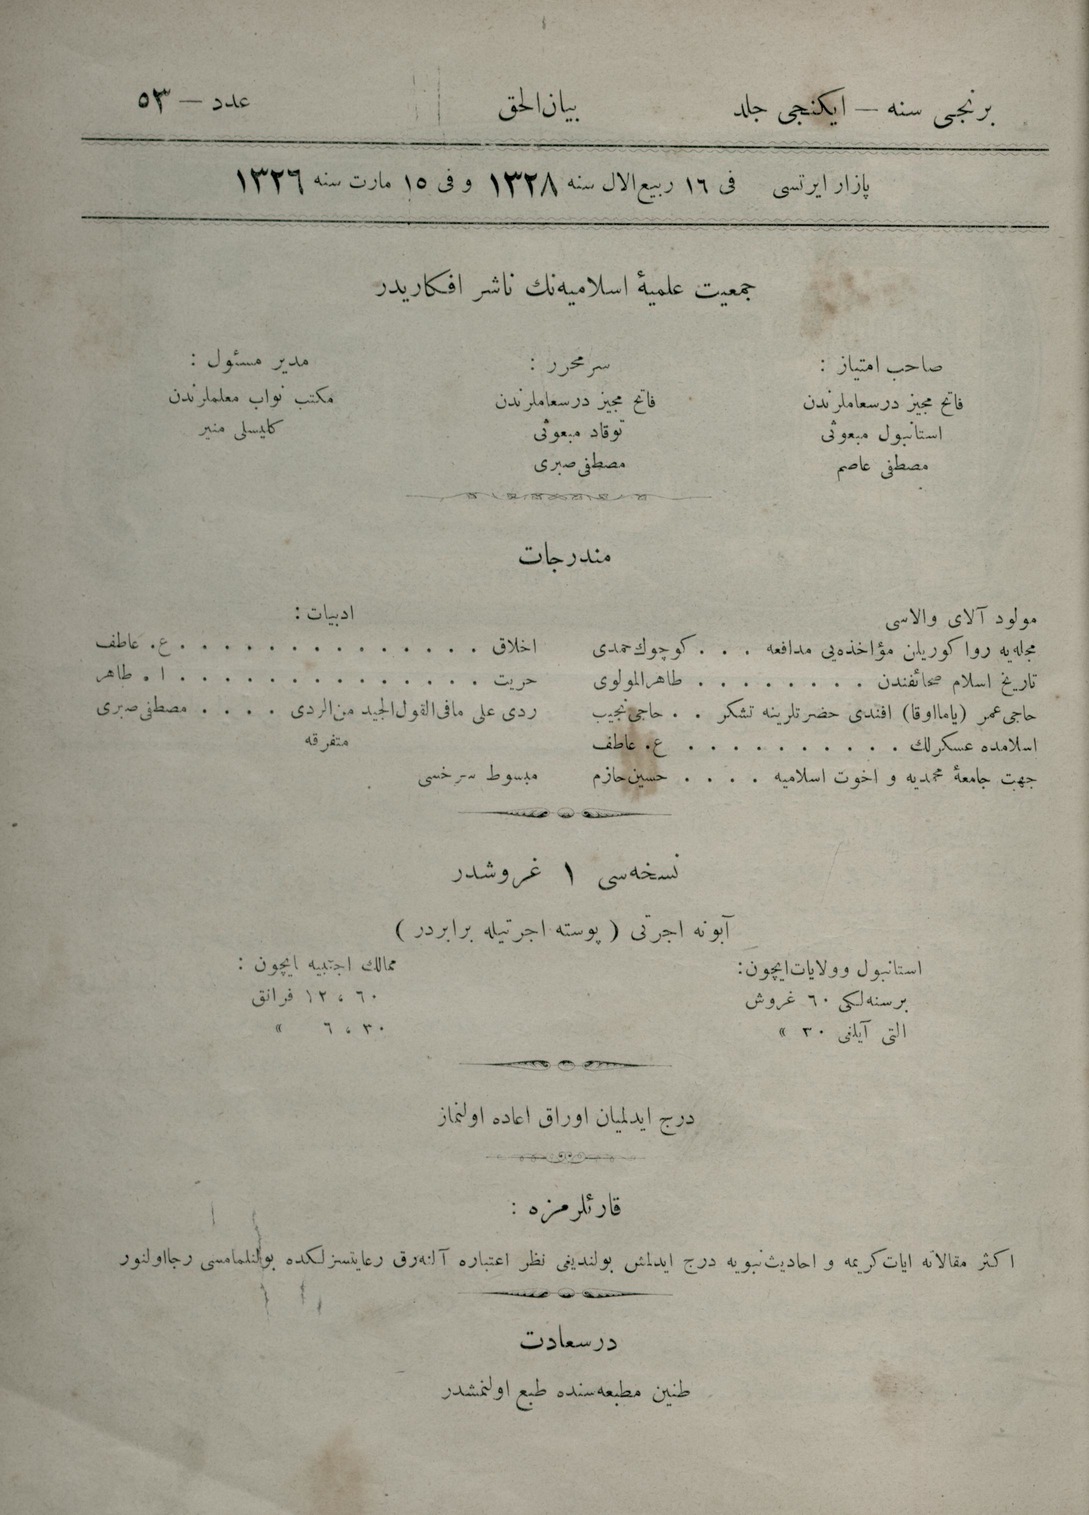 برنجی سنه — ایکنجی جلد
بیان‌الحق
عدد — ٥٣
پازار ایرتسی فی ١٦ ربیع‌الاول سنه ١٣٢٨ و فی ١٥ مارت سنه ١٣٢٦
جمعیت علمیهٔ اسلامیه‌نك ناشر افکاریدر
صاحب امتیاز :
فاتح مجیز درسعاملرندن
استانبول مبعوثی
مصطفی عاصم
سر محرر :
فاتح مجیز درسعاملرندن
توقاد مبعوثی
مصطفی صبری
مدیر مسئول :
مکتب نواب معلملرندن
کلیسلی منیر
مندرجات
مولود آلای والاسی
مجله‌یه روا کوریلن مؤاخذه‌یی مدافعه . . . کوچوك حمدی
تاریخ اسلام صحائفندن . . . . . . . . طاهرالمولوی
حاجی عمر (یامااوقا) افندی حضرتلرینه تشکر . . حاجی نجیب
اسلامده عسکرلك . . . . . . . . . . ع. عاطف
جهت جامعهٔ محمدیه و اخوت اسلامیه . . . . حسین حازم
ادبیات :
اخلاق . . . . . . . . . . . . . . ع. عاطف
حریت . . . . . . . . . . . . . . ا . طاهر
ردی علی مافی‌القول‌الجید من‌الردی . . . . مصطفی صبری
متفرقه
مبسوط سرخسی
نسخه‌سی ١ غروشدر
آبونه اجرتی ( پوسته اجرتیله برابردر )
استانبول وولایات ایچون:
برسنه‌لکی ٦٠ غروش
التی آیلغی ٣٠ »
ممالك اجنبیه ایچون :
٦٠ ، ١٢ فرانق
٣٠ ، ٦ »
درج ایدلمیان اوراق اعاده اولنماز
قارئلرمزه :
اکثر مقالاته ایات کریمه و احادیث نبویه درج ایدلمش بولندیغی نظر اعتباره آلنه‌رق رعایتسزلکده بولنلمامسی رجا اولنور
درسعادت
طنین مطبعه‌سنده طبع اولنمشدر